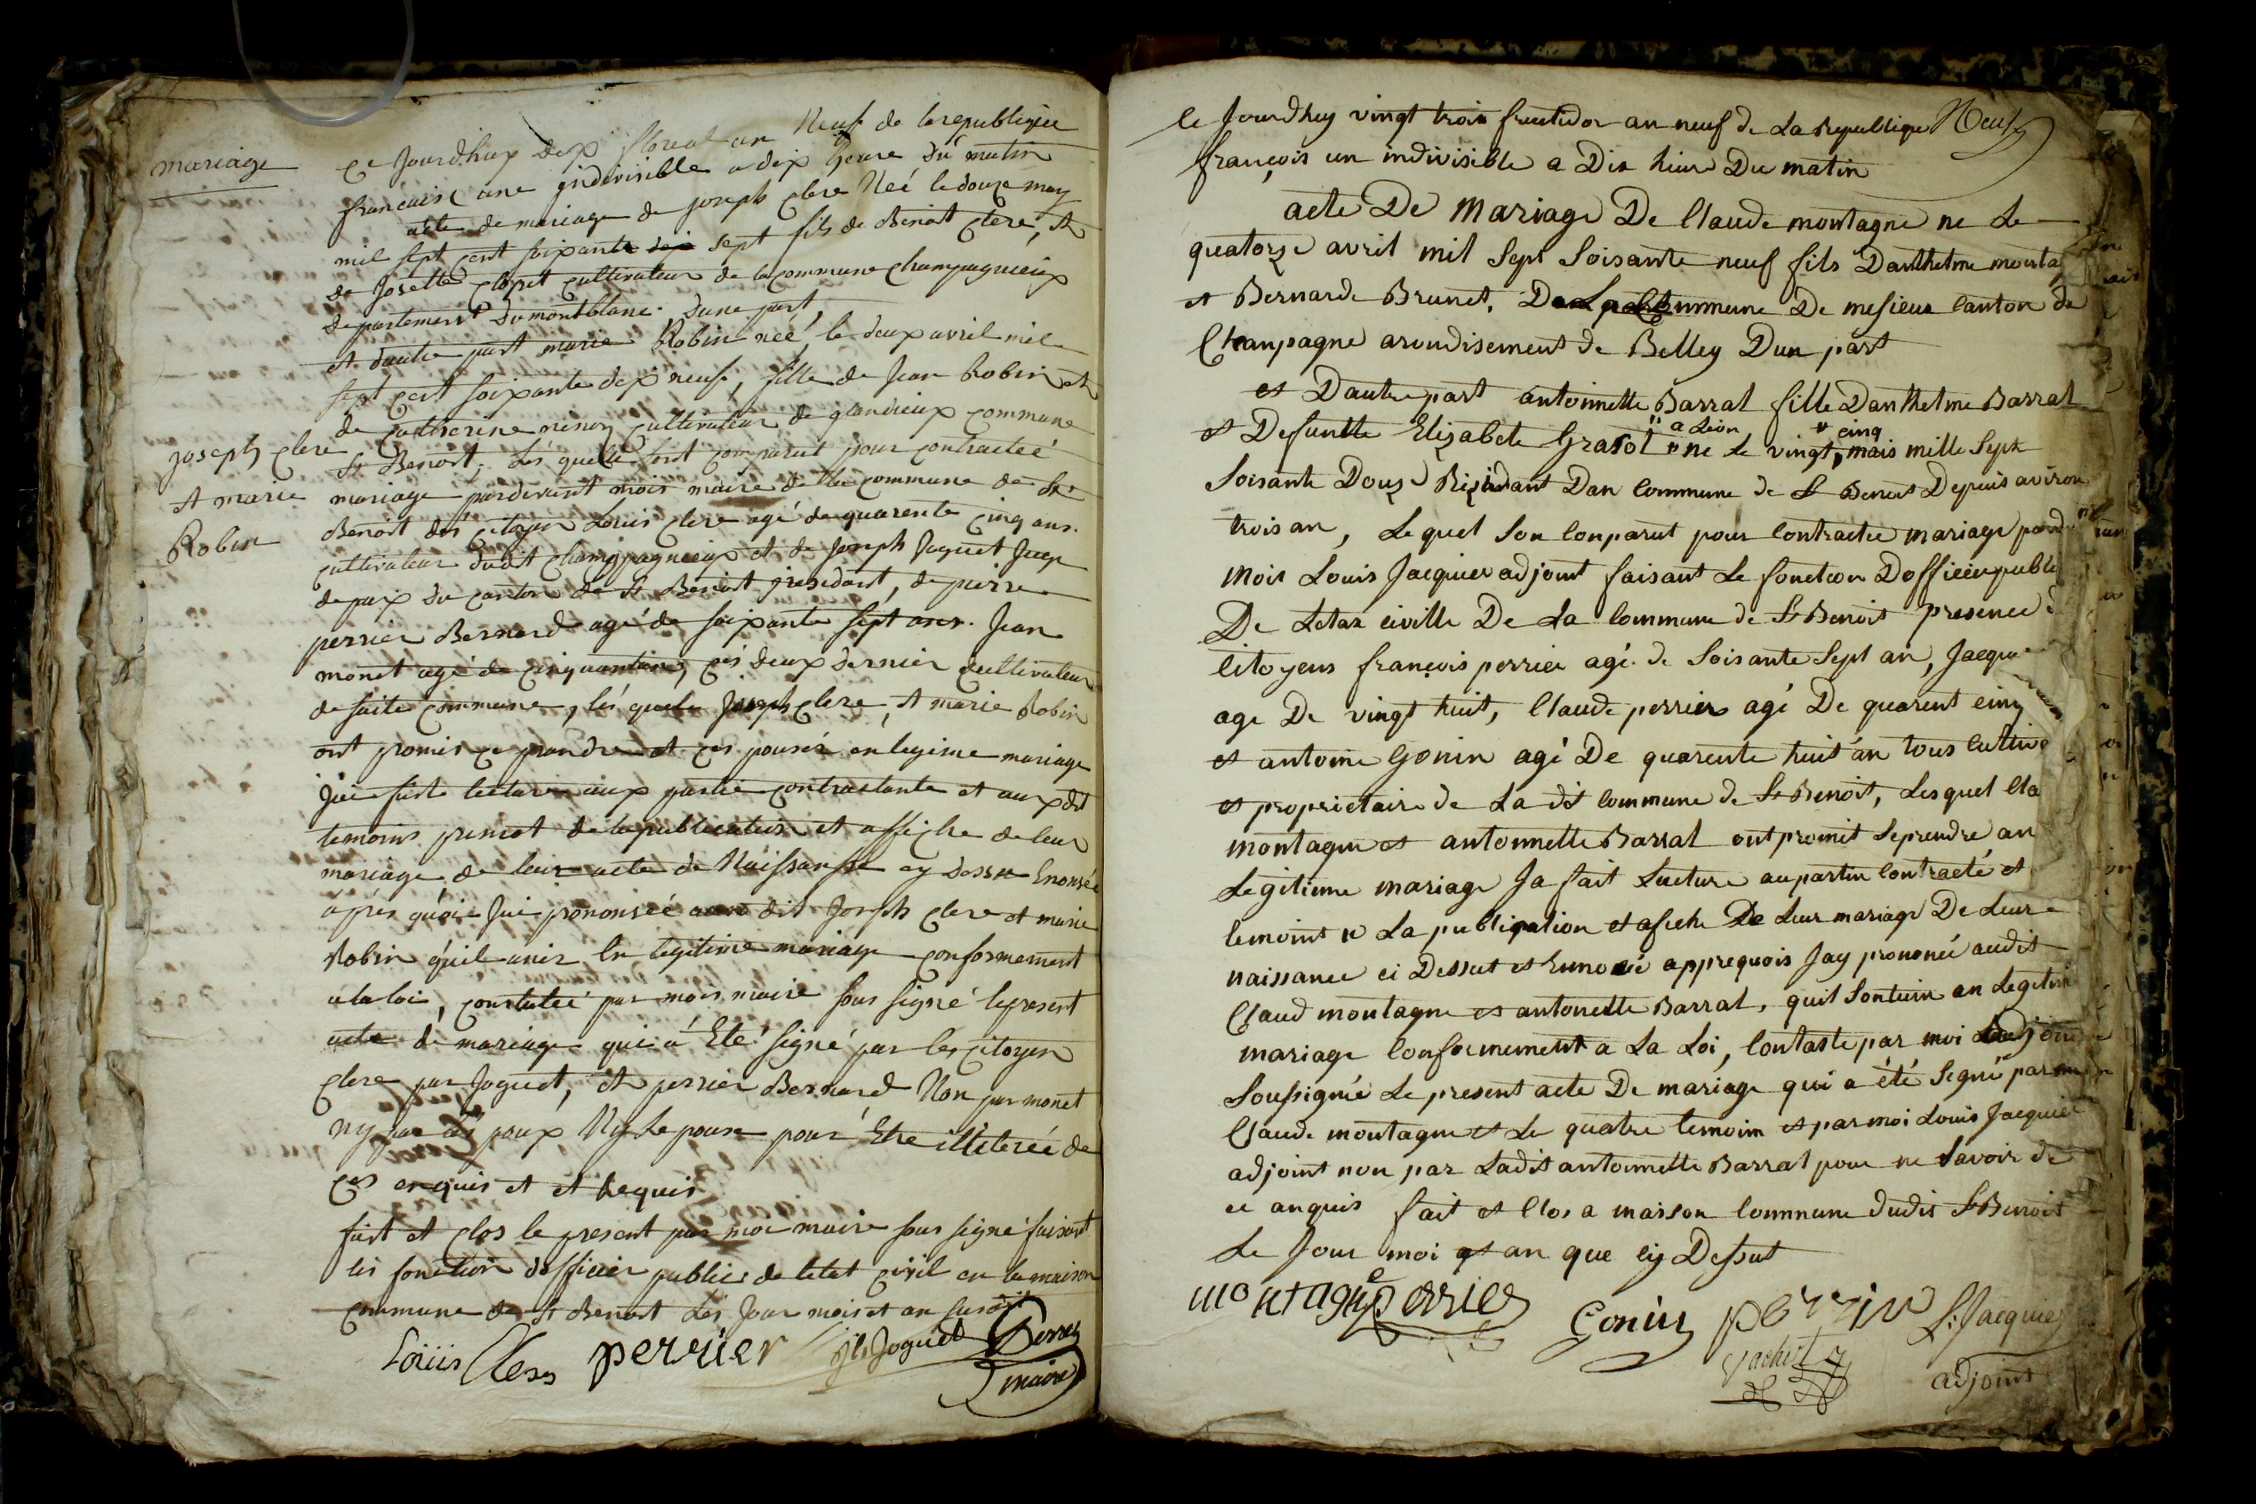 mariage
Ce Jourdhuy dix floreal an Neuf de la republique
francaise une indivisible a dix heure du matin
acte de mariage de joseph clere Neé le douze may
mil sept cent soixante sept fils de Benoit clere, et
de Josette clopet cultivateur de la commune Champagnieux
departement du montblanc. dune part,
et dautre part marie Robin neé, le deux avril mil
sept cent soixante dix neuf, fille de Jean Robin et
de catherine cultivateur de glandieux commune
joseph clere
St Benoit. Les quelle sont comparut pour contracteé
A marie
mariage pardevant mois maire de la commune de St
Robin
Benoit des citoyen Louis clere agé de quarente cinq ans.
cultivateur dudit champagnieux et de joseph Joguet Juge
de paix du canton de St Benoit presidant, de pierre
perrier Bernard agé de soixante sept ans. Jean
monet agé de cinquantaine, ces deux dernier cultivateur
de suite commune, les quels Joseph clere, A marie Robin
ont promis ce prendre et ces pousés en legime mariage
J'ai fait lecture aux partie contractante et aux dit
temoins de la publication et affiche de leur
mariage de leur acte de Naissansse cy dessu Enonsée
aprés quoie J'ai prononseé dit Joseph clere et marie
Robin quil unis En legitime mariage conformement
a la loi, constateé par mois maire sous signé le present
acte de mariage qui a Eté signé par les citoyen
clere par Joguet, et perrier Bernard Non par monet
Ny par poux Ny Le pouse pour Etre illitereé de
ces enquis et et Requis
fait et clos le present par moi maire sous signé faisant
les fonction dofficier public de letat civil en la maison
commune de St Benoit Les Jour mois et an susdit
Loüis Clere perrier Joguet
maire
Ce Jourdhuy vingt trois fructidor an neuf de La Republique Neuf
françois un indivisible a Dix heure Du matin
acte De Mariage De Claude montagne ne Le
quatorze avril mil sept Soisante neuf fils Danthelme monta
et Bernarde Brunet, De La Commune De mesieux Canton de
Champagne arondisement de Belley Dun part
et Dautre part antoinette Barral fille Danthelme Barral
et Defuntte Elizabete Grasol a Leion ne Le vingt cinq mais mille Sept
Soisante Douze Rizidant Dan Commune de St Benoit Depuis aviron
trois an, Lequel Son Conparut pour Contracter mariage
Mois Louis Jacquier adjoint faisant Le fonction Dofficier publi
De Letaz civille De La Commune de St Benoit presence d
Citoyens françois perrier agé de Soisante Sept an, Jacque
age De vingt huit, Claude perrier agé De quarent cinq
et antoine Gonin agé De quarente huit an tous Cultiv
et proprietaire de La dit Commune de St Benoit, Lesquel Cla
montagne et antonnette Barral ont promit Seprendre an
Legitime mariage Ja fait Lecture au partin Contracté et
temoint La publication et afiche De Leur mariage De Leur
naissance ci Dessut et Enoncé apprequois Jay prononcé audit
Claud montagne et antonette Barral, quil Sontuin an Legitim
mariage Conformement a La Loi, Contaste par moi adjoin
Soussignié Le present acte De mariage qui a été Signé par
Claude montagne et Le quatre temoin et par moi Louis Jacquier
adjoint non par Ladit antoinnette Barral pour ne Savoir de
ce anquis fait et Clos a maison Commune dudit St Benoit
Le Jour moi et an que cy Dessut
montagne perrier Gonin perrier L. Jacquier
adjoint